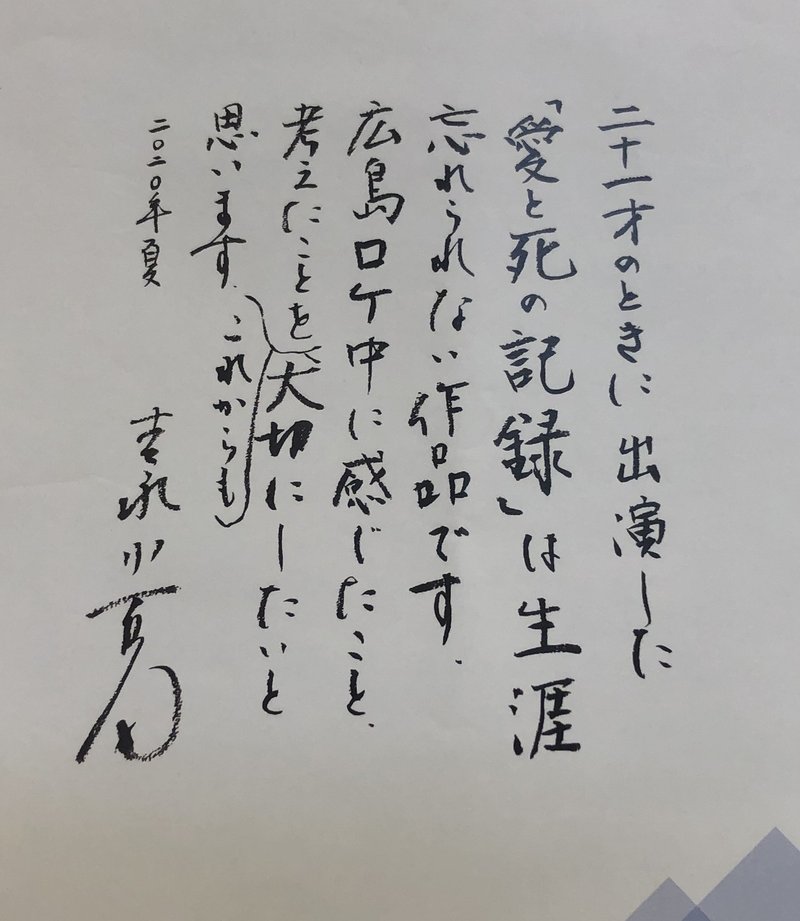 二十一才のときに出演した
「愛と死の記録」は生涯
忘れられない作品です.
広島ロケ中に感じたこと、
考えたことを大切にしたいと
思います.
これからも
二〇二〇年夏
吉永小百合